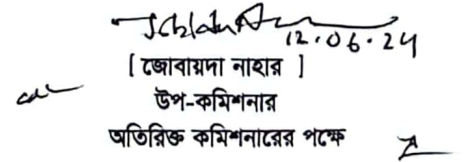 12.06.24
[ জোবায়দা নাহার ]
উপ-কমিশনার
অতিরিক্ত কমিশনারের পক্ষে